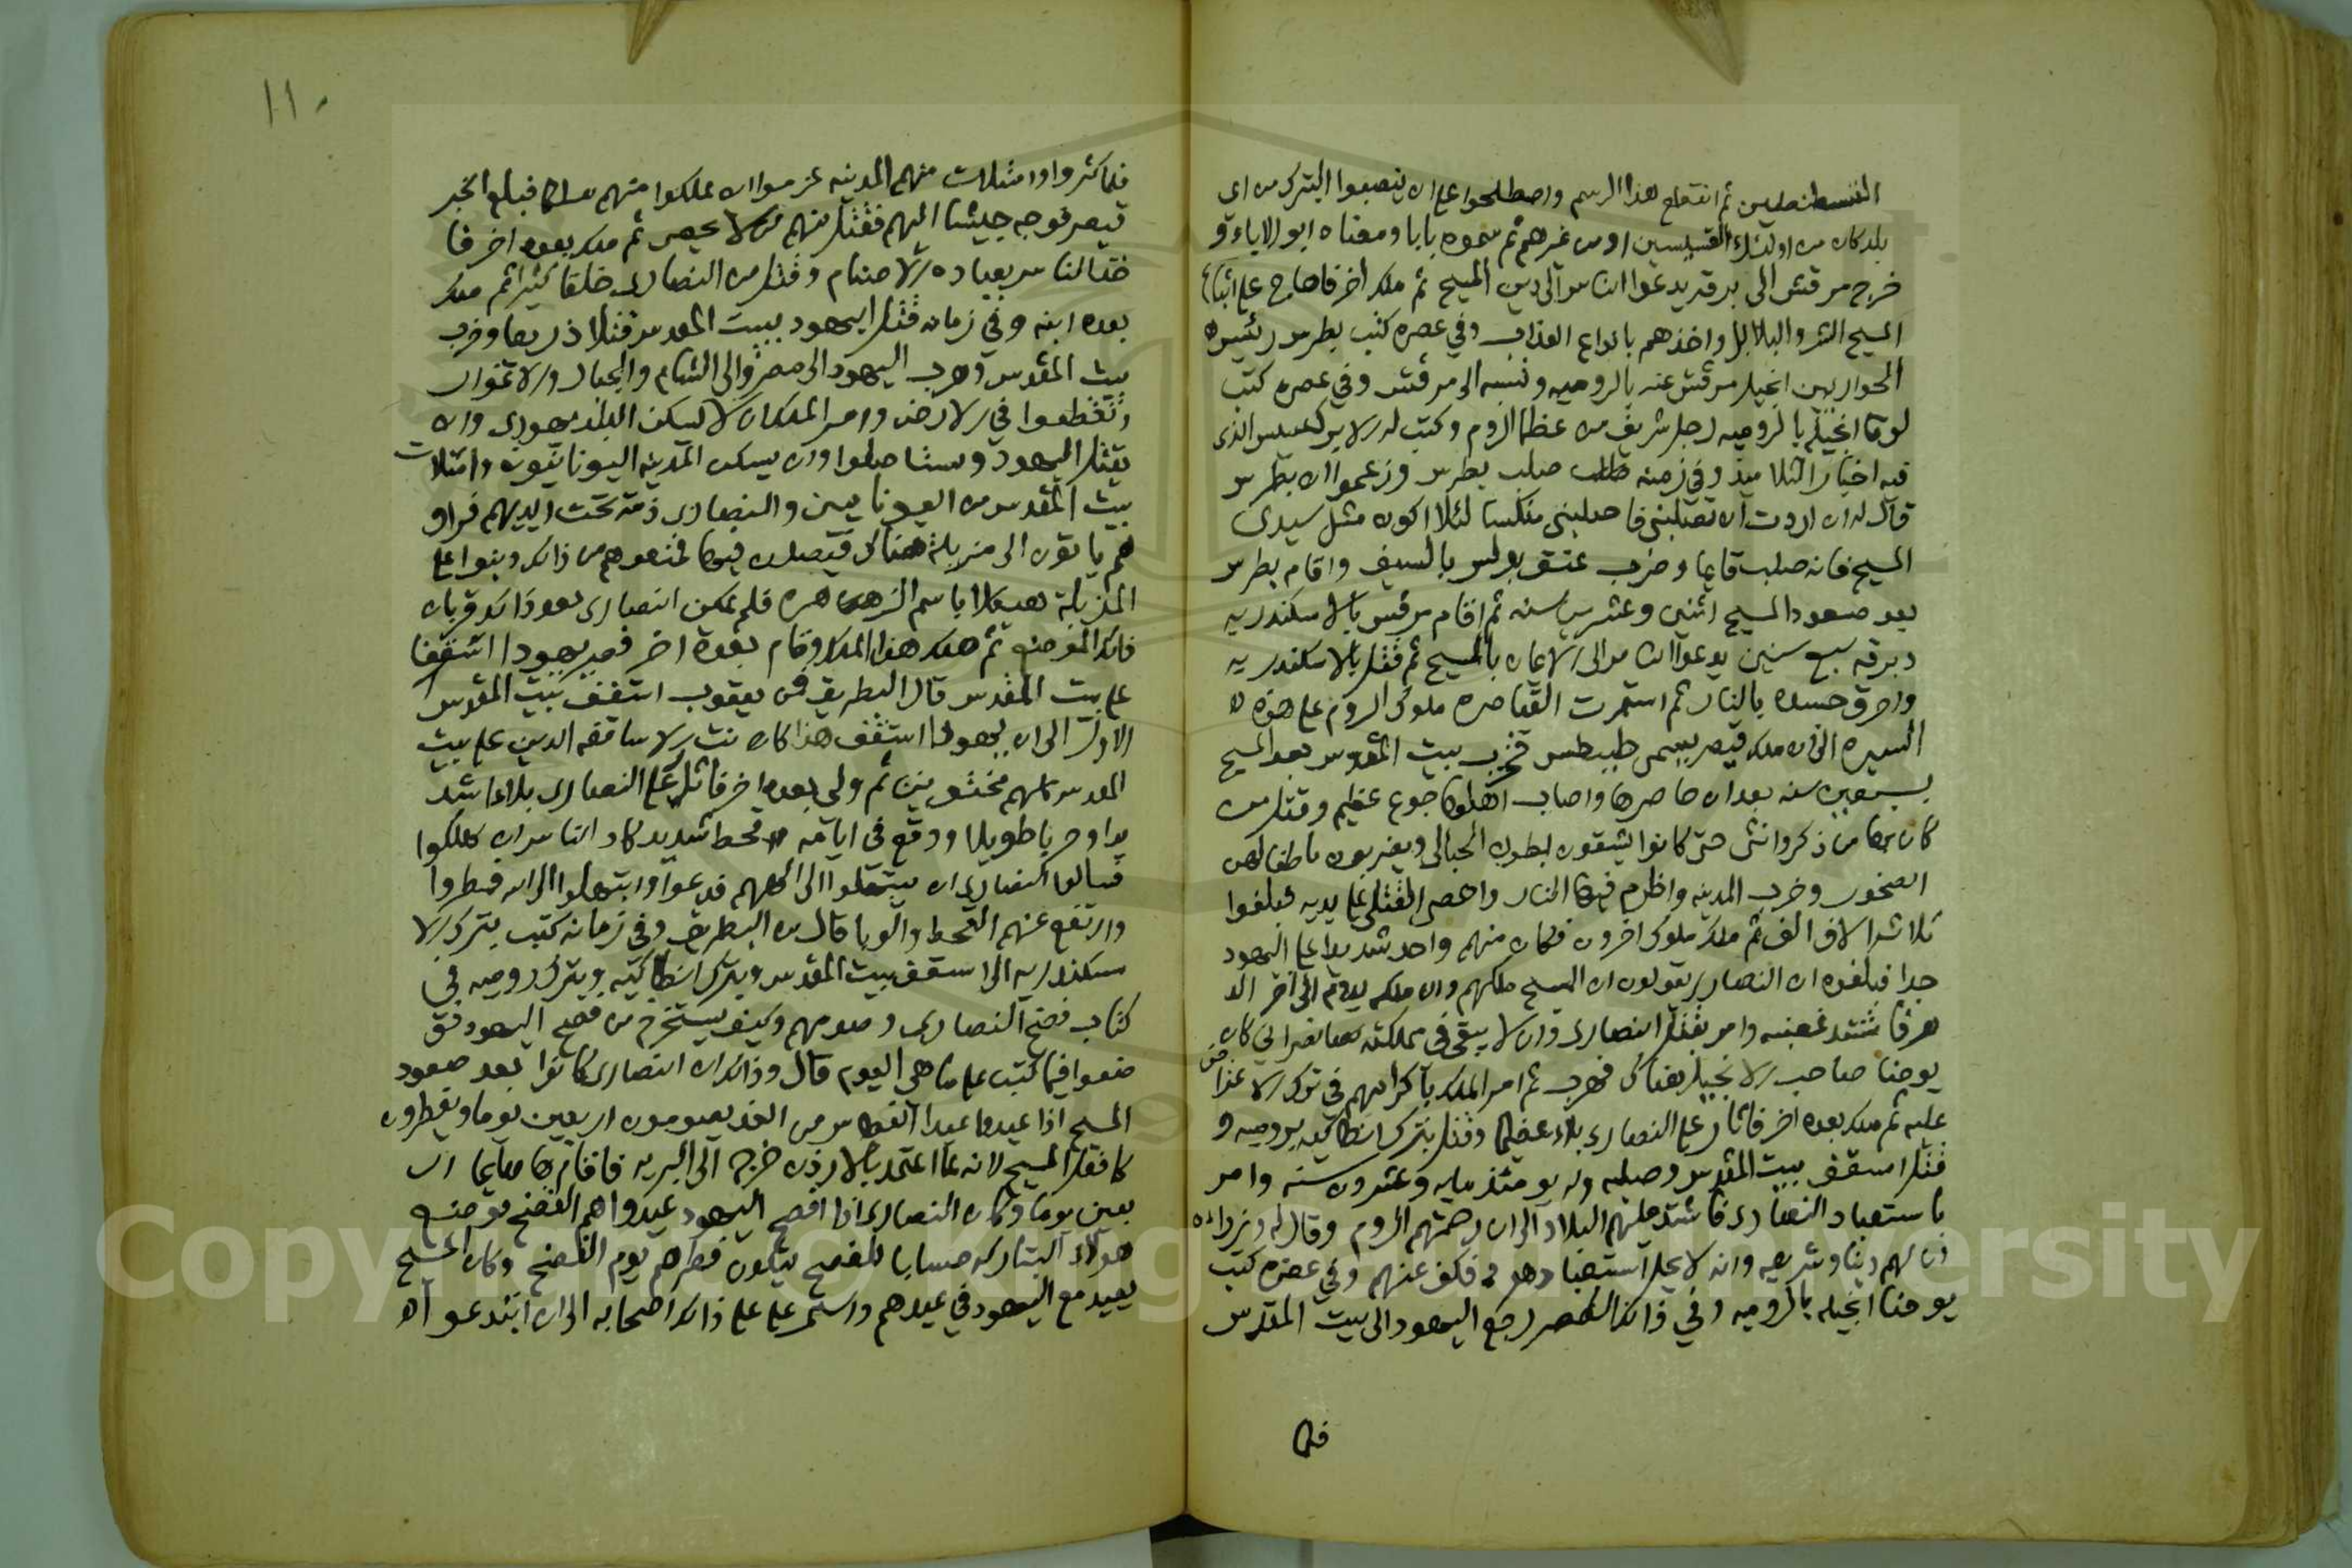 القسطنطين ثم انقطع هذا الرسم واصطلحوا على ان ينصبوا البترك من اى
بلد كان من اولئك القسيسين او من غيرهم ثم سموه بابا ومعناه ابو الاباء و
خرج مرقش الى برقه يدعوا الناس الى دين المسيح ثم ملك اخر فاهاج على اتباع
المسيح الشر والبلابل واخذهم بانواع العذاب وفي عصره كتب بطرس رئيس
الحواريين انجيل مرقش عنه بالروميه ونسبه الى مرقش وفي عصره كتب
لوقا انجيله بالروميه لرجل شريف من عظما الروم وكتب له الابركسيس الذى
فيه اخبار التلاميذ وفي زمنه صلب بطرس وزعموا ان بطرس
قال له ان اردت ان تصلبني فاصلبني منكسا لئلا اكون مثل سيدى
المسيح فانه صلب قايما وضرب عنق بولس بالسيف واقام بطرس
بعد صعود المسيح اثنين وعشرين سنه ثم اقام مرقس بالاسكندريه
وبرقه سبع سنين يدعوا الناس الى الايمان بالمسيح ثم قتل بالاسكندريه
واحرق جسده بالنار ثم استمرت القياصره ملوك الروم على هذه
السيره الى ان ملك قيصر يسمى طيطس فخرب بيت المقدس بعد المسيح
بسبعين سنه بعد ان حاصرها واصاب اهلها جوع عظيم وقتل من
كان بها من ذكر وانثى حتى كانوا يشقون بطون الحبالى ويضربون باطفالهن
الصخور وخرب المدينه واضرم فيها النار واحصى القتلى على يديه فبلغوا
ثلاثه الاف الف ثم ملك ملوك اخرون فكان منهم واحد شديدا على اليهود
جدا فبلغوه ان النصارى يقولون ان المسيح ملكهم وان ملكه يدوم الى اخر الد
هر فاشتد غضبه وامر بقتل النصارى وان لا يبقى في مملكته نصراني وكان
يوحنا صاحب الانجيل هناك فهرب ثم امر الملك باكرامهم وترك الاعتراض
عليهم ثم ملك بعده اخر فاثار على النصارى بلاء عظيما وقتل بترك انطاكيه بروميه و
قتل اسقف بيت المقدس وصلبه وله يومئذ مايه وعشرون سنه وامر
باستعباد النصارى فاشتد عليهم البلاء الى ان رحمتهم الروم وقال له وزراءه
ان لهم دينا وشريعه وانه لا يحل استعبادهم فكف عنهم وفي عصره كتب
يوحنا انجيله بالروميه وفي ذلك العصر رجع اليهود الى بيت المقدس
فلما
١١٠
فلما كثروا وامتلات منهم المدينه عزموا ان يملكوا منهم ملكا فبلغ الخبر
قيصر فوجه جيشا اليهم فقتل منهم من لا يحصى ثم ملك بعده اخر فا
خذ الناس بعباده الاصنام وقتل من النصارى خلقا كثيرا ثم ملك
بعده ابنه وفي زمانه قتل اليهود ببيت المقدس قتلا ذريعا وخرب
بيت المقدس وهرب اليهود الى مصر والى الشام والجبال والاغوار
وتقطعوا في الارض وامر الملك ان لا يسكن البلد يهودى وان
يقتل اليهود ويستاصلوا وان يسكن المدينه اليونانيون وامتلات
بيت المقدس من اليونانيين والنصارى ذمة تحت ايديهم فراو
هم ياتون الى مزبلة هناك فيصلون فيها فمنعوهم من ذلك وبنوا على
المزبلة هيكلا باسم الزهره فلم يمكن النصارى بعد ذلك قربان
ذلك الموضع ثم هلك هذا الملك وقام بعده اخر فصير يهودا اسقفا
على بيت المقدس قال البطريق فمن يعقوب اسقف بيت المقدس
الاول الى ان يهودا اسقف هذا كانت الاساقفه الذين على بيت
المقدس كلهم مختونين ثم ولى بعده اخر فاثار على النصارى بلاءا شد
يدا وحربا طويلا ووقع في ايامه قحط شديد كاد الناس ان يهلكوا
فسالوا النصارى ان يبتهلوا الى الههم فدعوا وابتهلوا الى الله فمطروا
وارتفع عنهم القحط والوبا قال بن البطريق وفي زمانه كتب بترك الا
سكندريه الى اسقف بيت المقدس وبترك انطاكيه وبترك روميه في
كتاب فصح النصارى وصومهم وكيف يستخرج من فصح اليهود فو
ضعوا فيها كتبا على ما هى اليوم قال وذلك ان النصارى كانوا بعد صعود
المسيح اذا عيدوا عيد الغطاس من الغد يصومون اربعين يوما ويفطرون
كما فعل المسيح لانه لما اعتمد بالاردن خرج الى البريه فاقام بها صايما ار
بعين يوما وكان النصارى اذا افصح اليهود عيدوا هم الفصح فوضع
هولاء البتاركه حسابا للفصح ليكون فطرهم يوم الفصح وكان المسيح
يعيد مع اليهود في عيدهم واستمر على ذلك اصحابه الى ان ابتدعوا